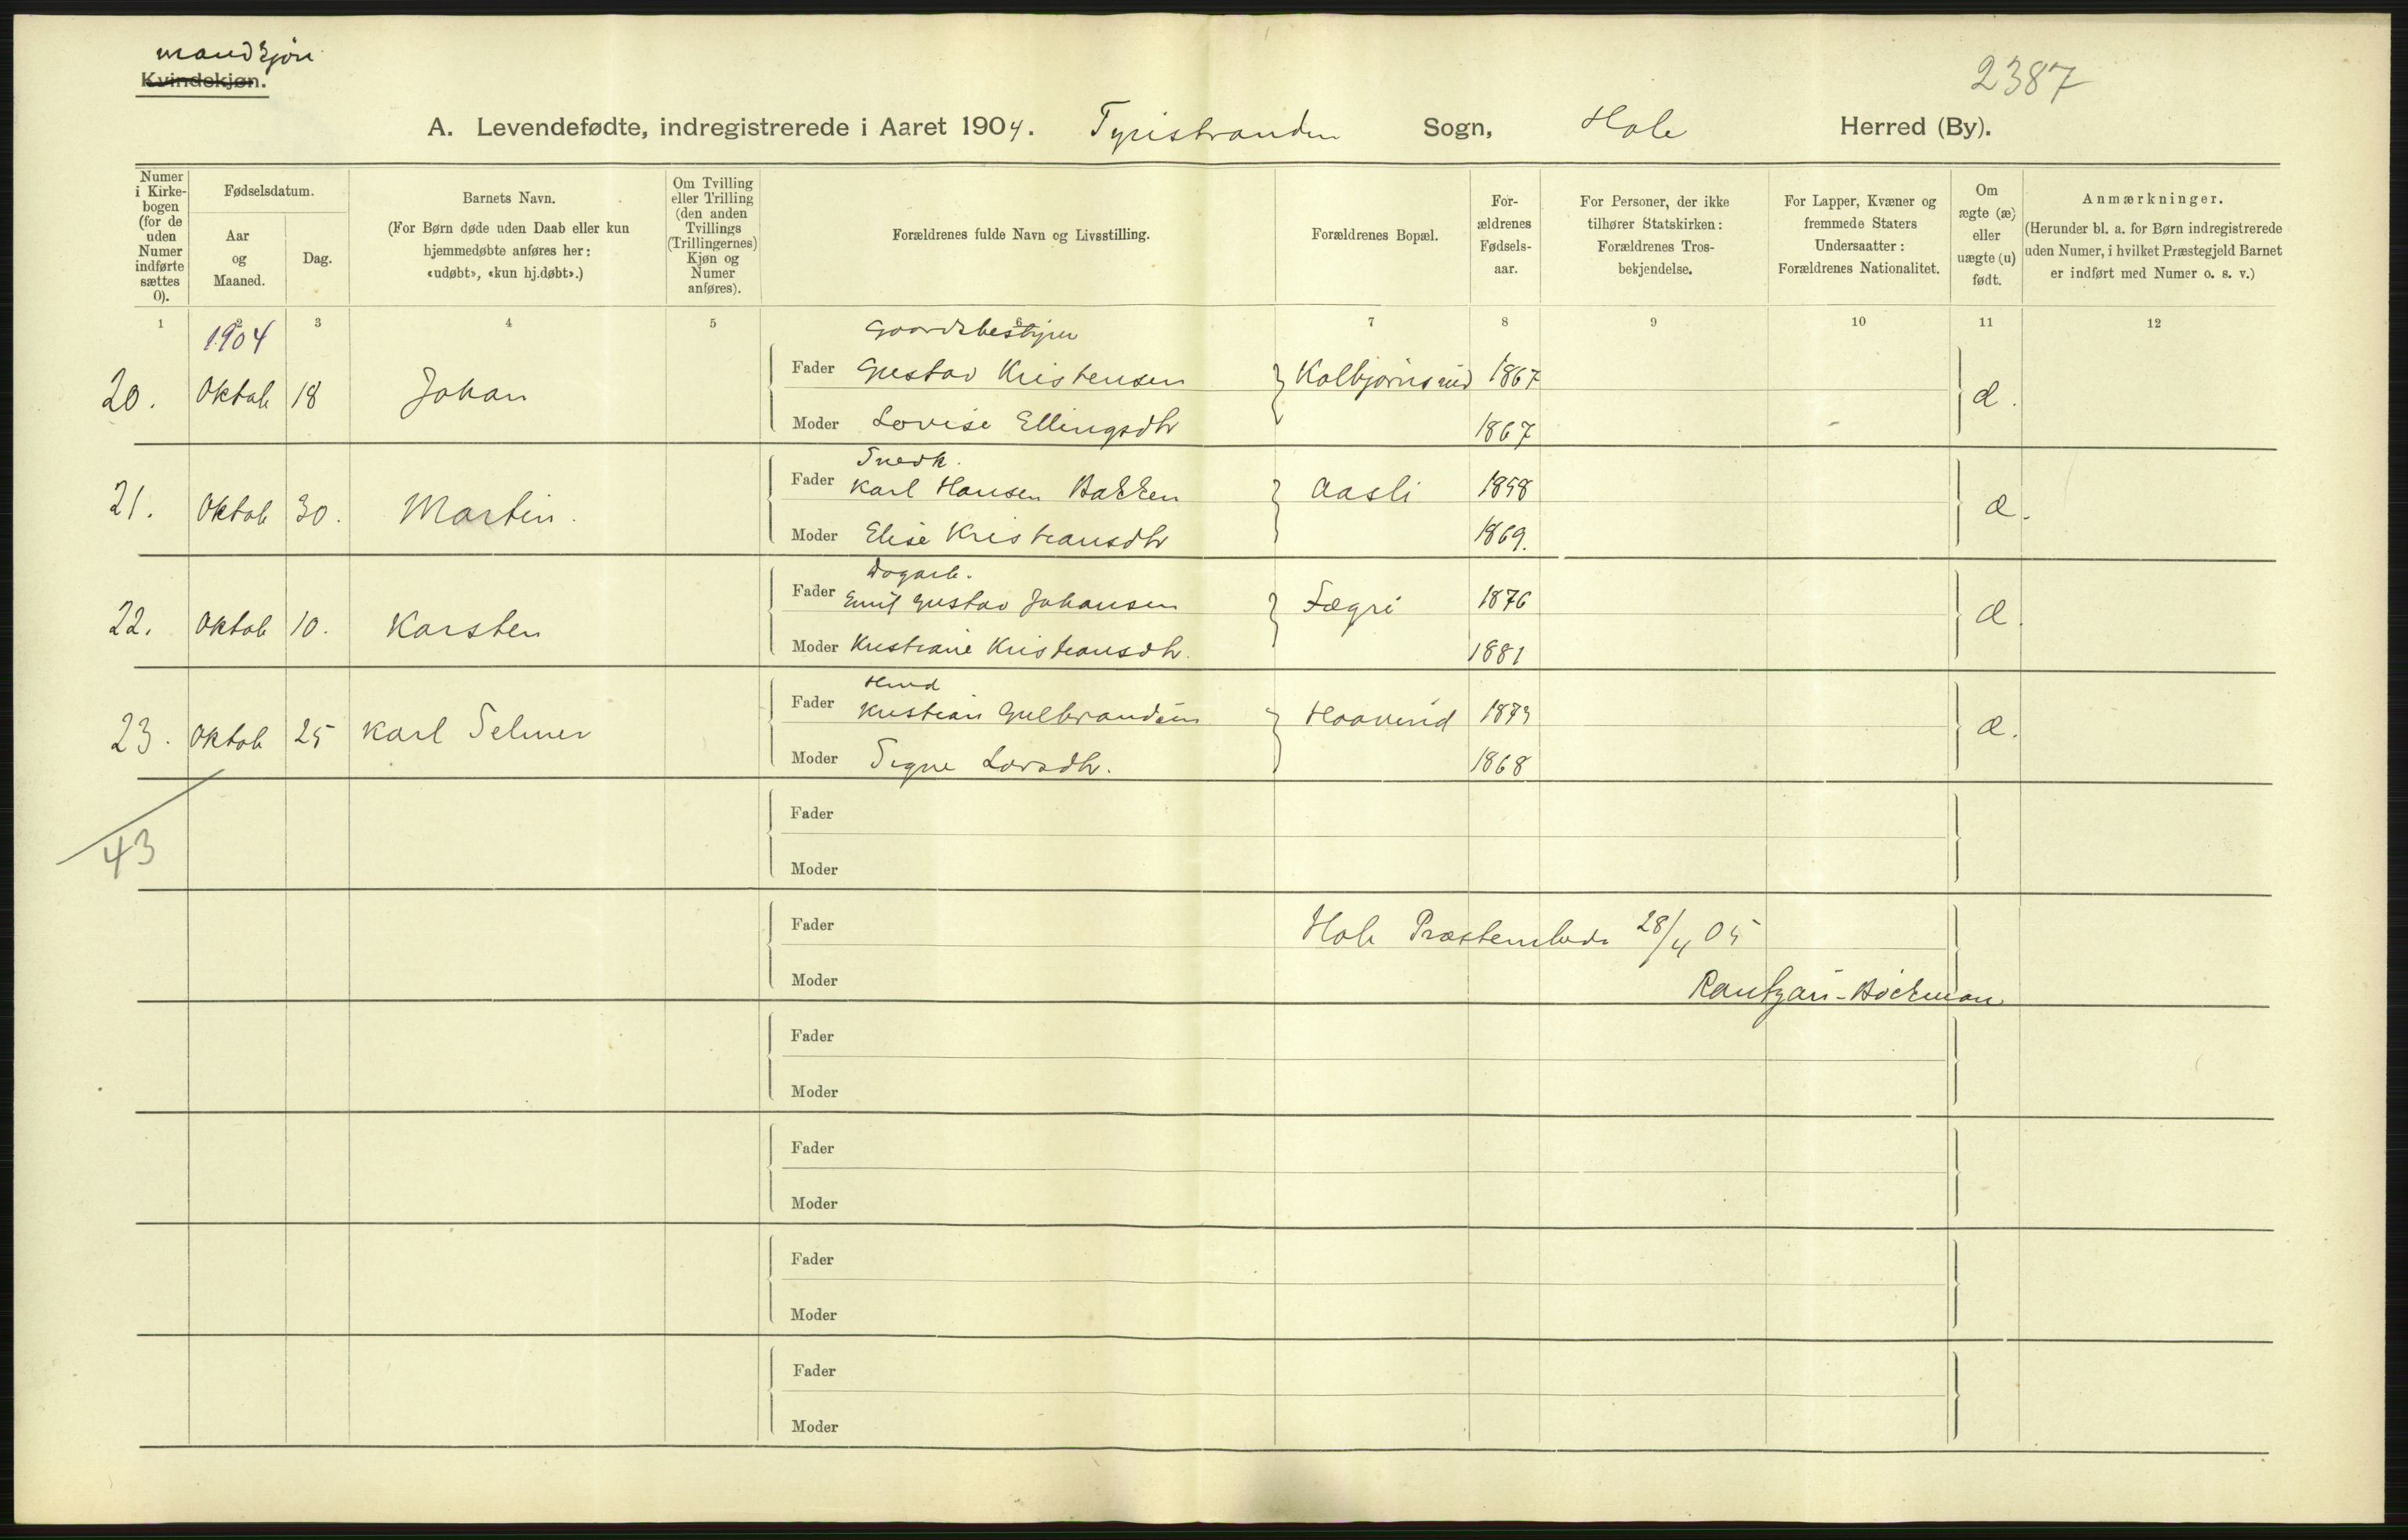 mandkjøn
Kvindekjøn.
2387
A. Levendefødte, indregistrerede i Aaret 1904. Tyristranden Sogn, Hole Herred (By).
Numer i Kirkebogen (for de uden Numer indførte sættes 0).
Fødselsdatum.
Aar og Maaned.
Dag.
Barnets Navn.
(For Børn døde uden Daab eller kun hjemmedøbte anføres her: «udøbt», «kun hj.døbt».)
Om Tvilling eller Trilling (den anden Tvillings (Trillingernes) Kjøn og Numer anføres).
Forældrenes fulde Navn og Livsstilling.
Forældrenes Bopæl.
Forældrenes Fødselsaar.
For Personer, der ikke tilhører Statskirken: Forældrenes Trosbekjendelse.
For Lapper, Kvæner og fremmede Staters Undersaatter: Forældrenes Nationalitet.
Om ægte (æ) eller uægte (u) født.
Anmærkninger.
(Herunder bl. a. for Børn indregistrerede uden Numer, i hvilket Præstegjeld Barnet er indført med Numer o. s. v.)
1 2 3 4 5 6 7 8 9 10 11 12
1904
Gaardsbestyrer
20. Oktob 18 Johan Fader Gustav Kristensen Kolbjørnsrud 1867 æ.
Moder Lovise Ellingsdtr 1867
Snedk.
21. Oktob 30. Martin. Fader Karl Hansen Bakken Aasli 1858 æ.
Moder Elise Kristiansdtr 1869.
Dagarb.
22. Oktob 10. Karsten Fader Emil Gustav Johansen Fægri 1876 æ.
Moder Kristiane Kristiansdtr. 1881
23. Oktob 25 Karl Selmer Fader Kristian Gulbrandsen Haaverud 1873 æ.
Moder Signe Larsdtr. 1868
43
Fader
Moder
Fader Hole Præstembede 28/4 05
Moder Rantzau-Böckman
Fader
Moder
Fader
Moder
Fader
Moder
Fader
Moder